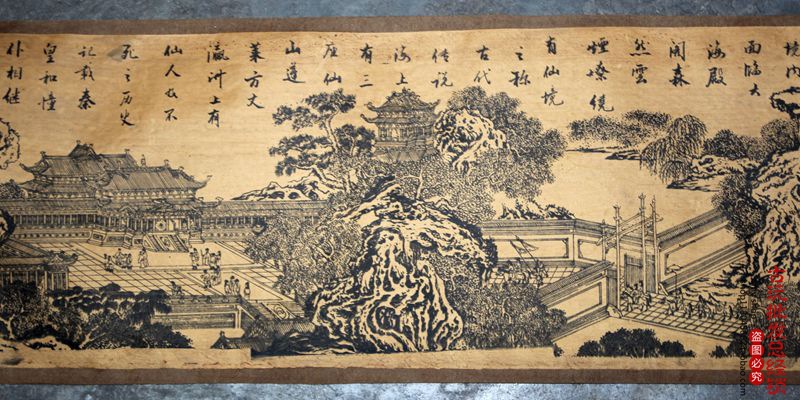 境内
面临大
海殿
阁森
然雲
煙缭绕
有仙境
之称
古代
传说
海上
有三
座仙
山蓬
莱方丈
瀛洲上有
仙人长不
死之历史
记载秦
皇和憧
仆相继
盗图必究